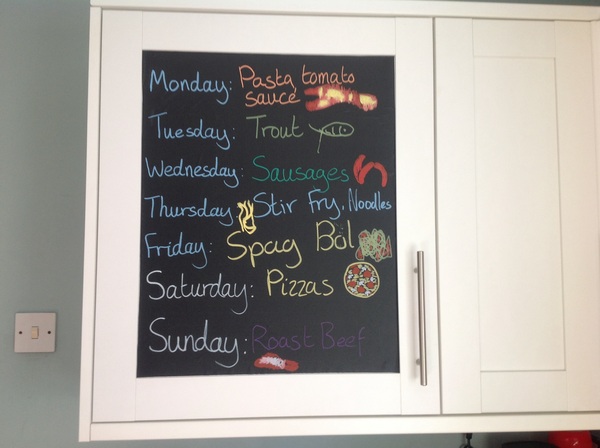 Monday: Pasta tomato
sauce
Tuesday: Trout
Wednesday: Sausages
Thursday: Stir Fry, Noodles
Friday: Spag Bol
Saturday: Pizzas
Sunday: Roast Beef